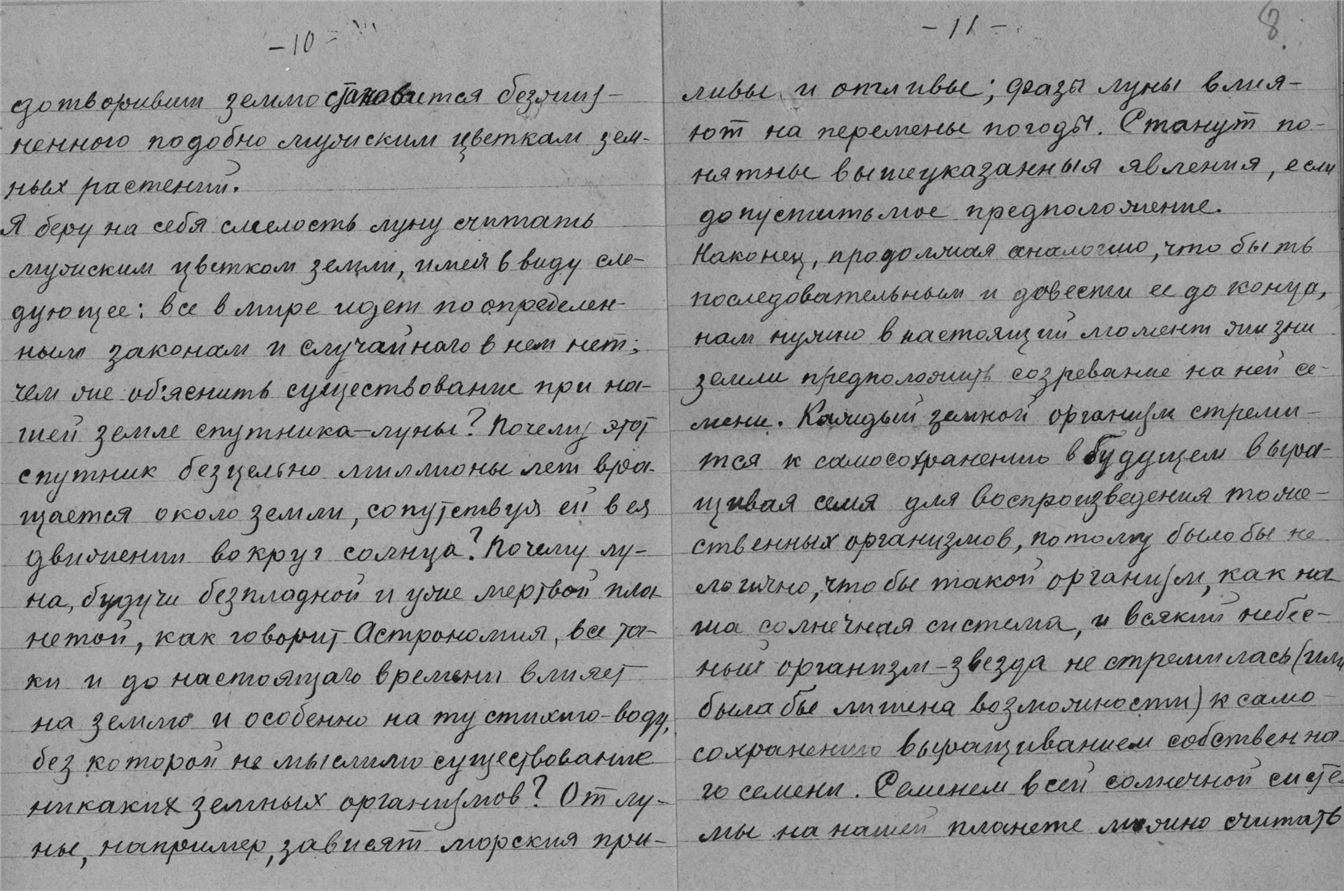 -10-
дотворивши землю становится безжиз-
ненного подобно мужским цветкам зем-
ных растений.
Я беру на себя смелость луну считать
мужским цветком земли, имея в виду сле-
дующее: все в мире идет по определен-
ным законам и случайного в нем нет;
чем же об'яснить существование при на-
шей земле спутника-луны? Почему этот
спутник безцельно миллионы лет вра-
щается около земли, сопутствуя ей в ея
движении вокруг солнца? Почему лу-
на, будучи безплодной и уже мертвой пла-
нетой, как говорит Астрономия, все та-
ки и до настоящаго времени влияет
на землю и особенно на ту стихию-воду,
без которой не мыслимо существование
никаких земных организмов? От лу-
ны, например, зависят морския при-
-11-
8
ливы и отливы; фазы луны влия-
ют на перемены погоды. Станут по-
нятны вышеуказанныя явления, если
допустить мое предположение.
Наконец, продолжая аналогию, что быть
последовательным и довести ее до конца,
нам нужно в настоящий момент жизни
земли предположить созревание на ней се-
мени. Каждый земной организм стреми-
тся к самосохранению в будущем выра-
щивая семя для воспроизведения тоже-
ственных организмов, потому было бы не
логично, чтобы такой организм, как на
ша солнечная система, и всякий небес-
ный организм-звезда не стремилась (или
была бы лишена возможности) к само-
сохранению выращиванием собственна
го семени. Семенем всей солнечной систе
мы на нашей планете можно считать